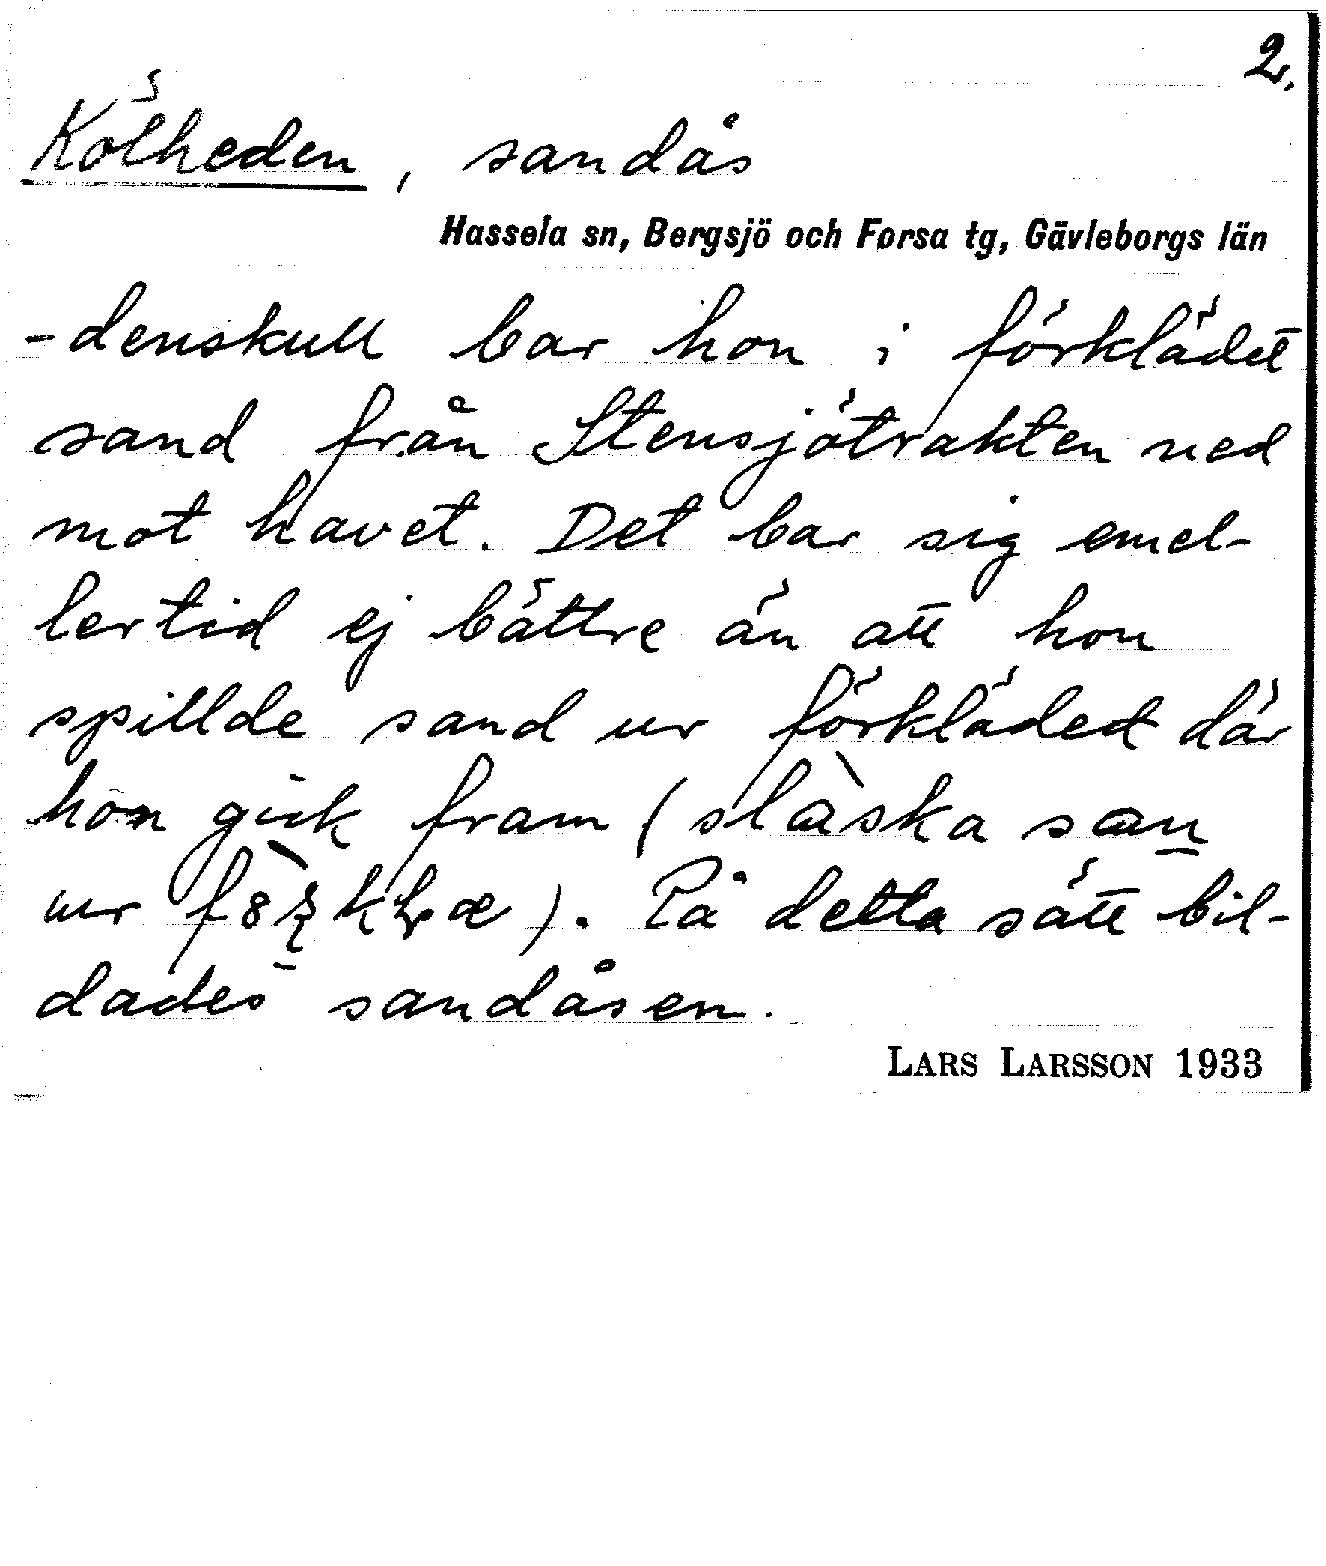 2.
Kölheden, sandås
Hassela sn, Bergsjö och Forsa tg, Gävleborgs län
-denskull bar hon i förklädet
sand från Stensjötrakten ned
mot havet. Det bar sig emel-
lertid ej bättre än att hon
spillde sand ur förklädet där
hon gick fram (slàska san
ur ). På detta sätt bil-
dades sandåsen.
LARS LARSSON 1933